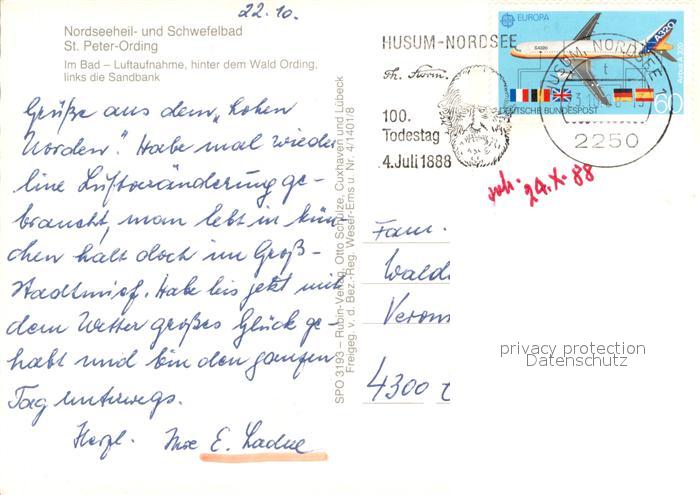 22.10.
Nordseeheil- und Schwefelbad
St. Peter-Ording
Im Bad – Luftaufnahme, hinter dem Wald Ording,
links die Sandbank
Grüße aus dem „hohen
Norden". Habe mal wieder
eine Luftveränderung ge-
braucht, man lebt in Mün-
chen halt doch im Groß-
stadtmief. Habe bis jetzt mit
dem Wetter großes Glück ge-
habt und bin den ganzen
Tag unterwegs.
Herzl. E.
SPO 3193 – Rubin-Verlag, Otto Schulze, Cuxhaven und Lübeck
Freigeg. v. d. Bez.-Reg. Weser-Ems u. Nr. 4/1401/8
HUSUM-NORDSEE
Th. Storm.
100.
Todestag
4. Juli 1888
EUROPA
A320
Airbus A 320
DEUTSCHE BUNDESPOST
60
HUSUM, NORDSEE 1
2250
24.X.88
Fam.
Wald
4300
privacy protection
Datenschutz